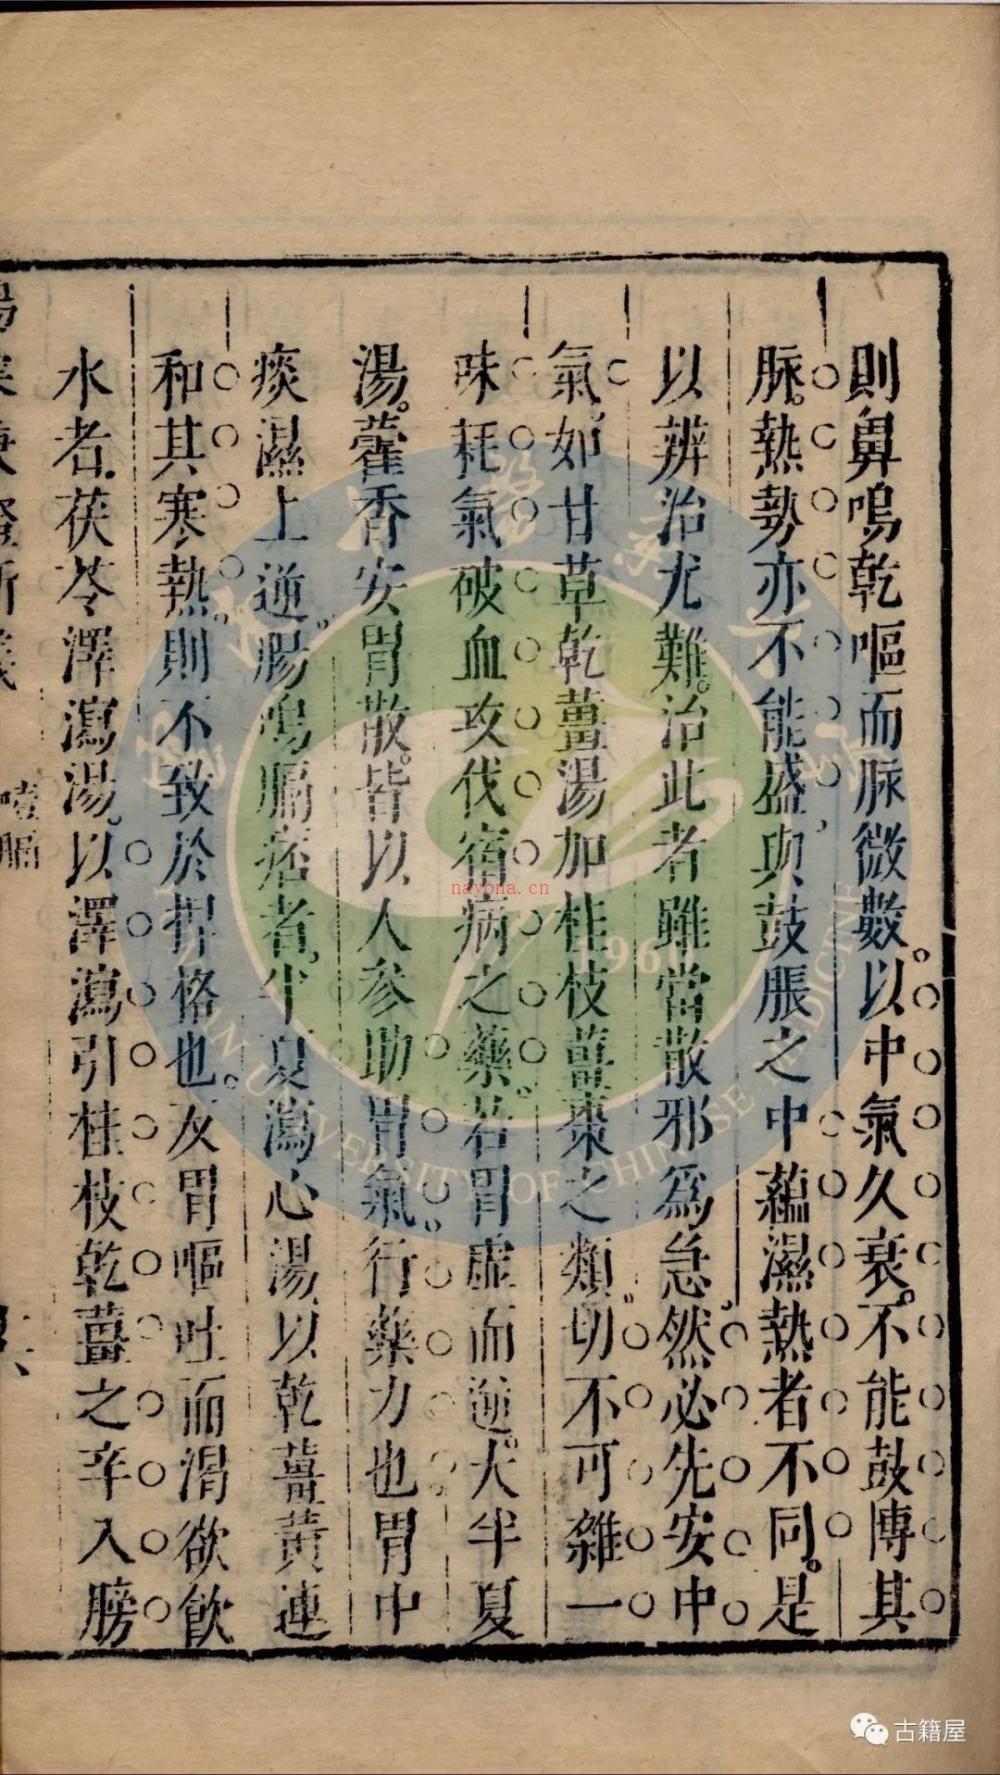 則鼻鳴乾嘔而脈微數。以中氣久衰。不能鼓愽其
脈。熱勢亦不能盛與鼓脹之中蘊濕熱者不同。是
以辨治尤難。治此者雖當散邪爲急。然必先安中
氣。如甘草乾薑湯加桂枝薑棗之類。切不可雜一
味耗氣破血攻伐宿病之藥。若胃虛而逆。大半夏
湯。藿香安胃散。皆以人參助胃氣。行藥力也胃中
痰濕上逆。腸鳴膈痞者。半夏瀉心湯。以乾薑黃連
和其寒熱。則不致於捍格也。反胃嘔吐而渴欲飮
水者。茯苓澤瀉湯。以澤瀉引桂枝乾薑之辛入膀
噎膈
nayona.cn
1960
UNIVERSITY OF CHINESE MEDICINE
古籍屋